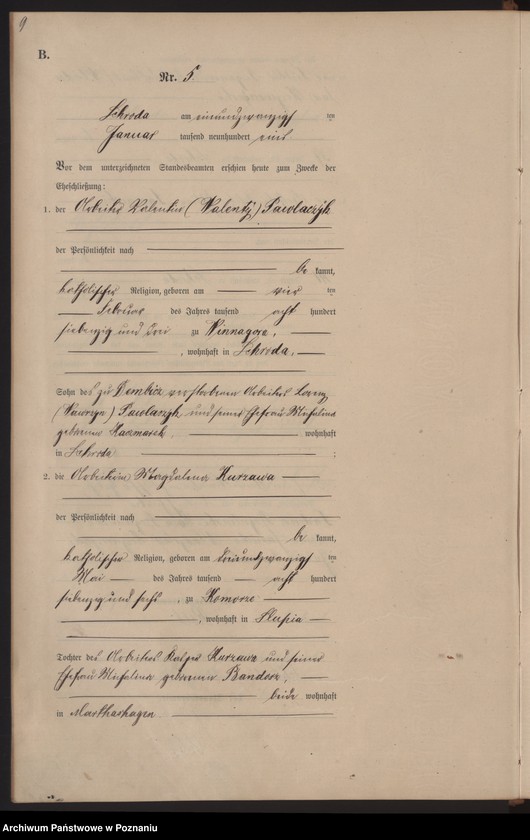 9
B.
Nr. 5.
Schroda am einundzwanzigs ten
Januar tausend neunhundert eins
Vor dem unterzeichneten Standesbeamten erschien heute zum Zwecke der
Eheschließung:
1. der Arbeiter Valentin (Walenty) Pawlaczyk
der Persönlichkeit nach
be kannt,
katholischer Religion, geboren am vier ten
Februar des Jahres tausend acht hundert
siebenzig und drei zu Winnagora,
, wohnhaft in Schroda,
Sohn des zu Dembicz verstorbenen Arbeiters Lorenz
(Wawrzyn) Pawlaczyk und seiner Ehefrau Michalina
geborenen Kaczmarek, wohnhaft
in Schroda ;
2. die Arbeiterin Magdalena Kurzawa
der Persönlichkeit nach
be kannt,
katholischer Religion, geboren am dreiundzwanzigs ten
Mai des Jahres tausend acht hundert
siebenzig und sechs, zu Komorze
, wohnhaft in Slupia
Tochter des Arbeiters Kasper Kurzawa und seiner
Ehefrau Michalina geborenen Bandosz,
beide wohnhaft
in Marthashagen.
Archiwum Państwowe w Poznaniu